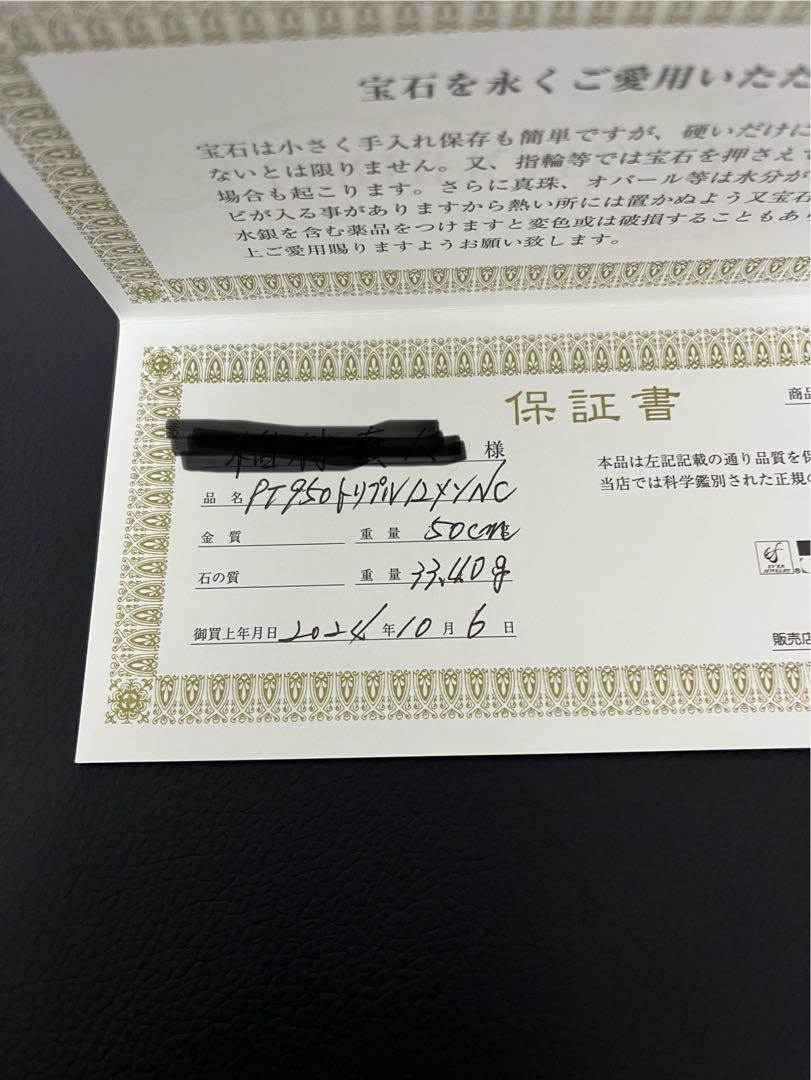 宝石を永くご愛用いただ
宝石は小さく手入れ保存も簡単ですが、硬いだけに
ないとは限りません。又、指輪等では宝石を押さえて
場合も起こります。さらに真珠、オパール等は水分が
ビが入る事がありますから熱い所には置かぬよう又宝石
水銀を含む薬品をつけますと変色或は破損することもあ
上ご愛用賜りますようお願い致します。
保証書
商品
様
品名 PT950トリプルロメンNC
金質 重量 50cm
石の質 重量 33.40g
御買上年月日 2024年10月6日
本品は左記記載の通り品質を保
当店では科学鑑別された正規の
販売店